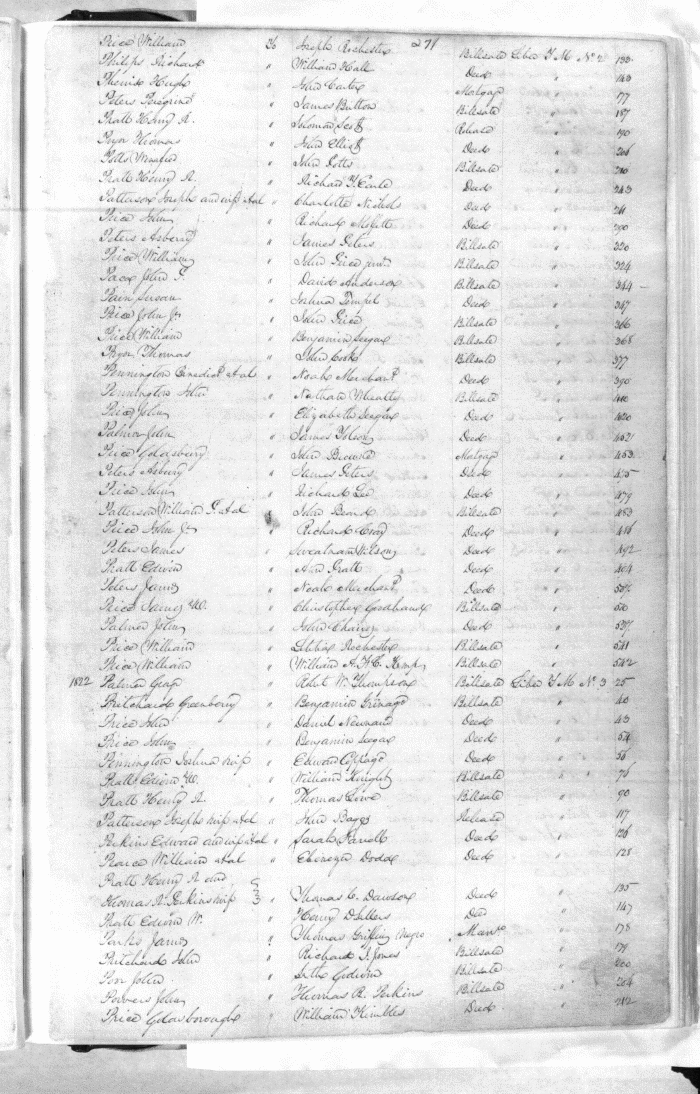 Price William to Joseph Rochester 271 Billsale Liber T M No 2 133
Philips Richard " William Hall Deed " 143
Phenix Hugh " John Carter Mortgage " 177
Peters Peregrine " James Britton Billsale " 187
Pratt Henry R. " Solomon Scott Release " 190
Pryor Thomas " John Elliott Deed " 206
Potts William " John Potts Billsale " 210
Pratt Henry R. " Richard T. Earle Deed " 243
Patterson Joseph and wife et al " Charlotte Nichols Deed " 241
Price John " Richard Deed " 290
Peters Asberry " James Peters Billsale " 320
Price William " John Price junr. Billsale " 324
Paca John P. " David Anderson Billsale " 344
Pain Susan " Joshua Deed " 347
Price John Jr " John Price Billsale " 366
Price William " Benjamin Seegar Billsale " 368
Pryor Thomas " John Cook Billsale " 377
Pennington Benedict et al " Noah Merchant Deed " 390
Pennington John " Nathan Wheatly Billsale " 410
Price John " Elizabeth Seegar Deed " 420
Palmer John " James Tolson Deed " 452
Price Goldsberry " John Browne Mortgage " 453
Peters Asbury " James Peters Deed " 455
Price John " Richard Lee Deed " 479
Patterson William P. et al " John Beard Billsale " 483
Price John Jr " Richard Cray Deed " 486
Peters James " Sweatnam Wilson Deed " 492
Pratt Edwin " Ann Pratt Deed " 494
Peters James " Noah Merchant Deed "
Price James W. " Christopher Goodhand Billsale " 510
Palmer John " John Chairez Deed " 537
Price William " Rochester Billsale " 541
Price William " William A. Kemp Billsale " 542
1822 Palmer George " Robert W. Thompson Billsale Liber T M No 3 25
Pritchard Greenberry " Benjamin Grinage Billsale " 40
Price John " Daniel Newnam Deed " 43
Price John " Benjamin Seegar Deed " 54
Pennington Joshua wife " Edward Coppage Deed " 56
Pratt Edwin W. " William Knight Billsale " 76
Pratt Henry R. " Thomas Lowe Billsale " 90
Patterson Joseph wife et al " John Baggs Release " 117
Perkins Edward and wife et al " Sarah Deed " 126
Pearce William et al " Ebenezer Dodd Deed " 128
Pratt Henry R. and
Thomas R. Perkins wife " Thomas C. Dawson Deed " 135
Pratt Edwin W. " Henry Deed " 147
Parks James " Thomas Griffin Negro Manu " 178
Pritchard John " Richard I. Jones Billsale " 178
Poor John " Seth Godwin Billsale " 200
Powers John " Thomas R. Perkins Billsale " 204
Price Goldsborough " William Kimbles Deed " 212